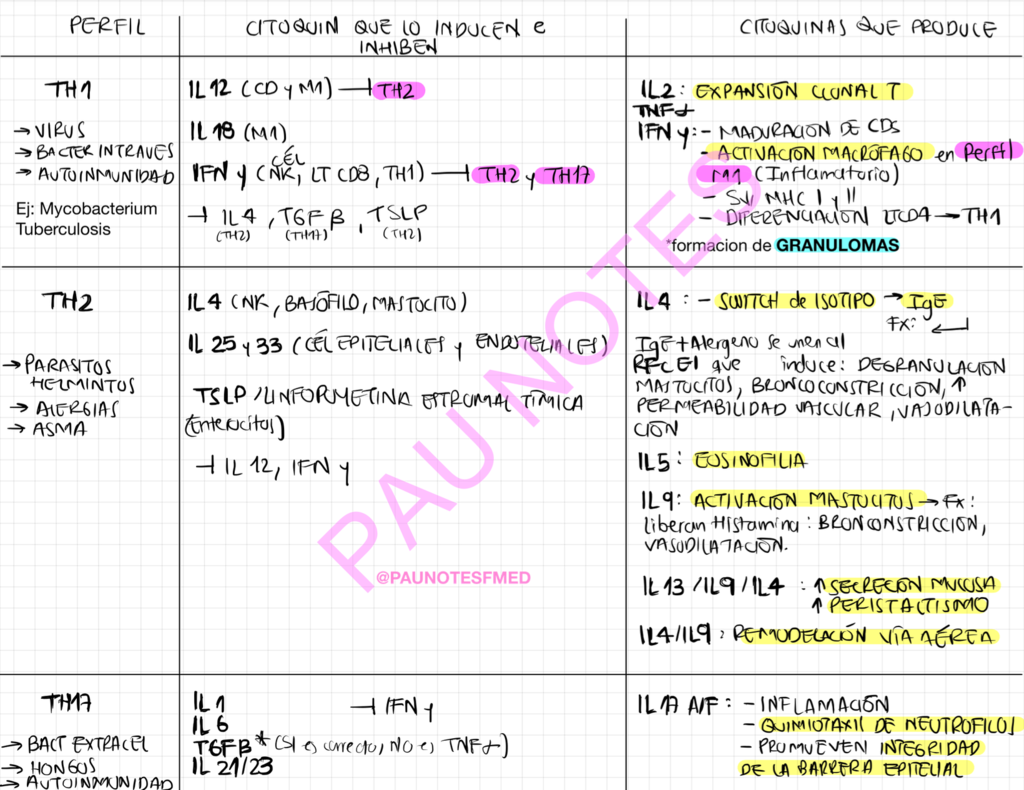 PERFIL
CITOQUIN QUE LO INDUCEN e
INHIBEN
CITOQUINAS QUE PRODUCE
TH1
→ VIRUS
→ BACTER INTRAVES
→ AUTOINMUNIDAD
Ej: Mycobacterium
Tuberculosis
IL12 (CD y M1) ⊣ TH2
IL18 (M1)
CÉL
IFN γ (NK, LT CD8, TH1) ⊣ TH2 y TH17
⊣ IL4, TGF β, TSLP
(TH2) (TH17) (TH2)
IL2: EXPANSIÓN CLONAL T
TNF α
IFN γ: - MADURACIÓN DE CDS
- ACTIVACIÓN MACRÓFAGO en Perfil
M1 (Inflamatorio)
- MHC I y II
- DIFERENCIACIÓN LTCD4 → TH1
*formacion de GRANULOMAS
TH2
→ PARASITOS
HELMINTOS
→ ALERGIAS
→ ASMA
IL4 (NK, BASÓFILO, MASTOCITO)
IL 25 y 33 (CÉL EPITELIALES y ENDOTELIALES)
TSLP / LINFOPOYETINA ESTROMAL TÍMICA
(Enterocitos)
⊣ IL 12, IFN γ
IL4 : - SWITCH de ISOTIPO → IgE
Fx: ↵
IgE + Alergeno se unen al
RFcE1 que induce: DEGRANULACIÓN
MASTOCITOS, BRONCOCONSTRICCIÓN, ↑
PERMEABILIDAD VASCULAR, VASODILATA-
CIÓN
IL5 : EOSINOFILIA
IL9: ACTIVACIÓN MASTOCITOS → Fx:
liberan Histamina: BRONCONSTRICCION,
VASODILATACIÓN.
IL13 / IL9 / IL4 : ↑ SECRECIÓN MUCOSA
↑ PERISTALTISMO
IL4/IL9 : REMODELACIÓN VÍA AÉREA
TH17
→ BACT EXTRACEL
→ HONGOS
→ AUTOINMUNIDAD
IL1 ⊣ IFN γ
IL6
TGFβ* (SI es correcto, NO es TNFα)
IL 21/23
IL17 A/F : - INFLAMACIÓN
- QUIMIOTAXIS DE NEUTROFILOS
- PROMUEVEN INTEGRIDAD
DE LA BARRERA EPITELIAL
PAU NOTES
@PAUNOTESFMED